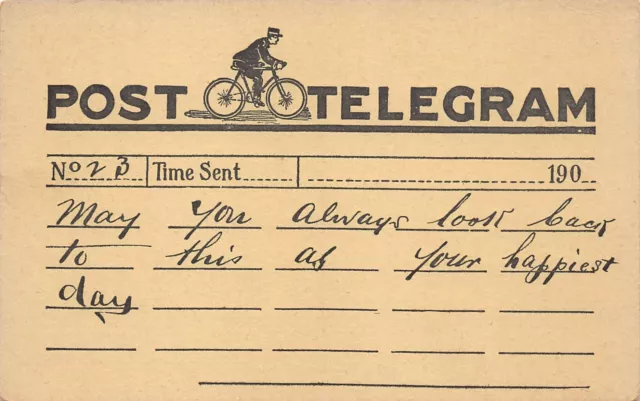 POST TELEGRAM
No 23 Time Sent 190
May you always look back
to this as your happiest
day